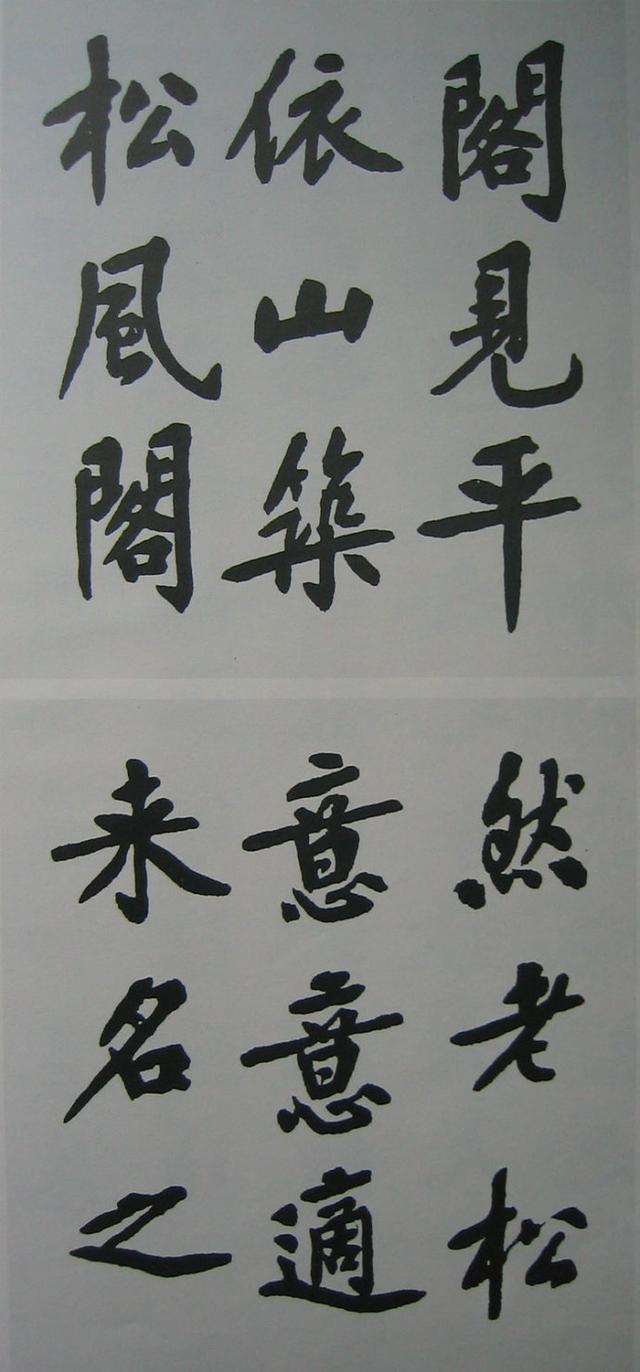 松風閣
依山築
閣見平
来名之
意意適
然老松